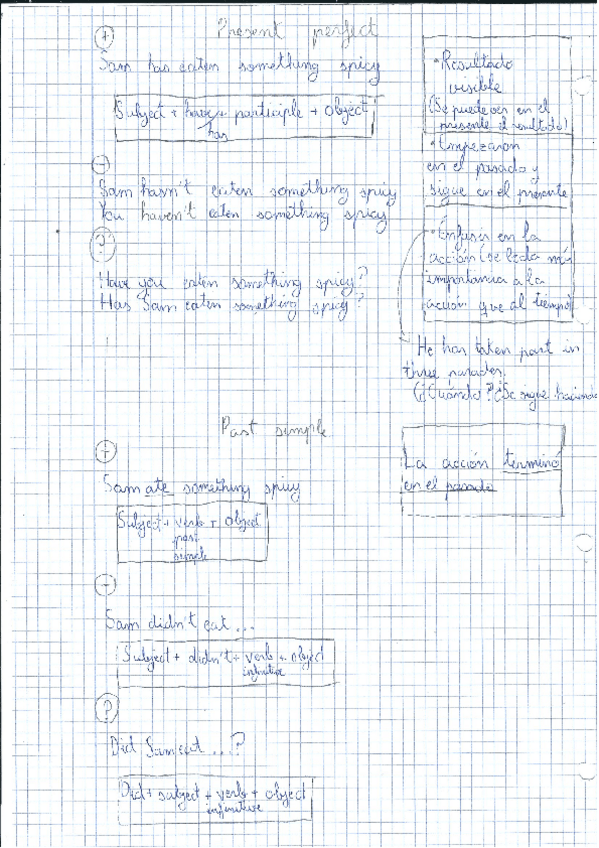 Present perfect
+
Sam has eaten something spicy
Subject + have + participle + object
has
-
Sam hasn't eaten something spicy
You haven't eaten something spicy
?
Have you eaten something spicy?
Has Sam eaten something spicy?
• Resultado
visible
(Se puede ver en el
presente el resultado)
• Empezaron
en el pasado y
sigue en el presente
• Énfasis en la
acción (se le da más
importancia a la
acción que al tiempo)
He has taken part in
three parades.
(¿Cuándo? ¿Se sigue haciendo
Past simple
+
Sam ate something spicy
Subject + verb + object
past
simple
La acción terminó
en el pasado
-
Sam didn't eat ...
Subject + didn't + verb + object
infinitive
?
Did Sam eat ...?
Did + subject + verb + object
infinitive